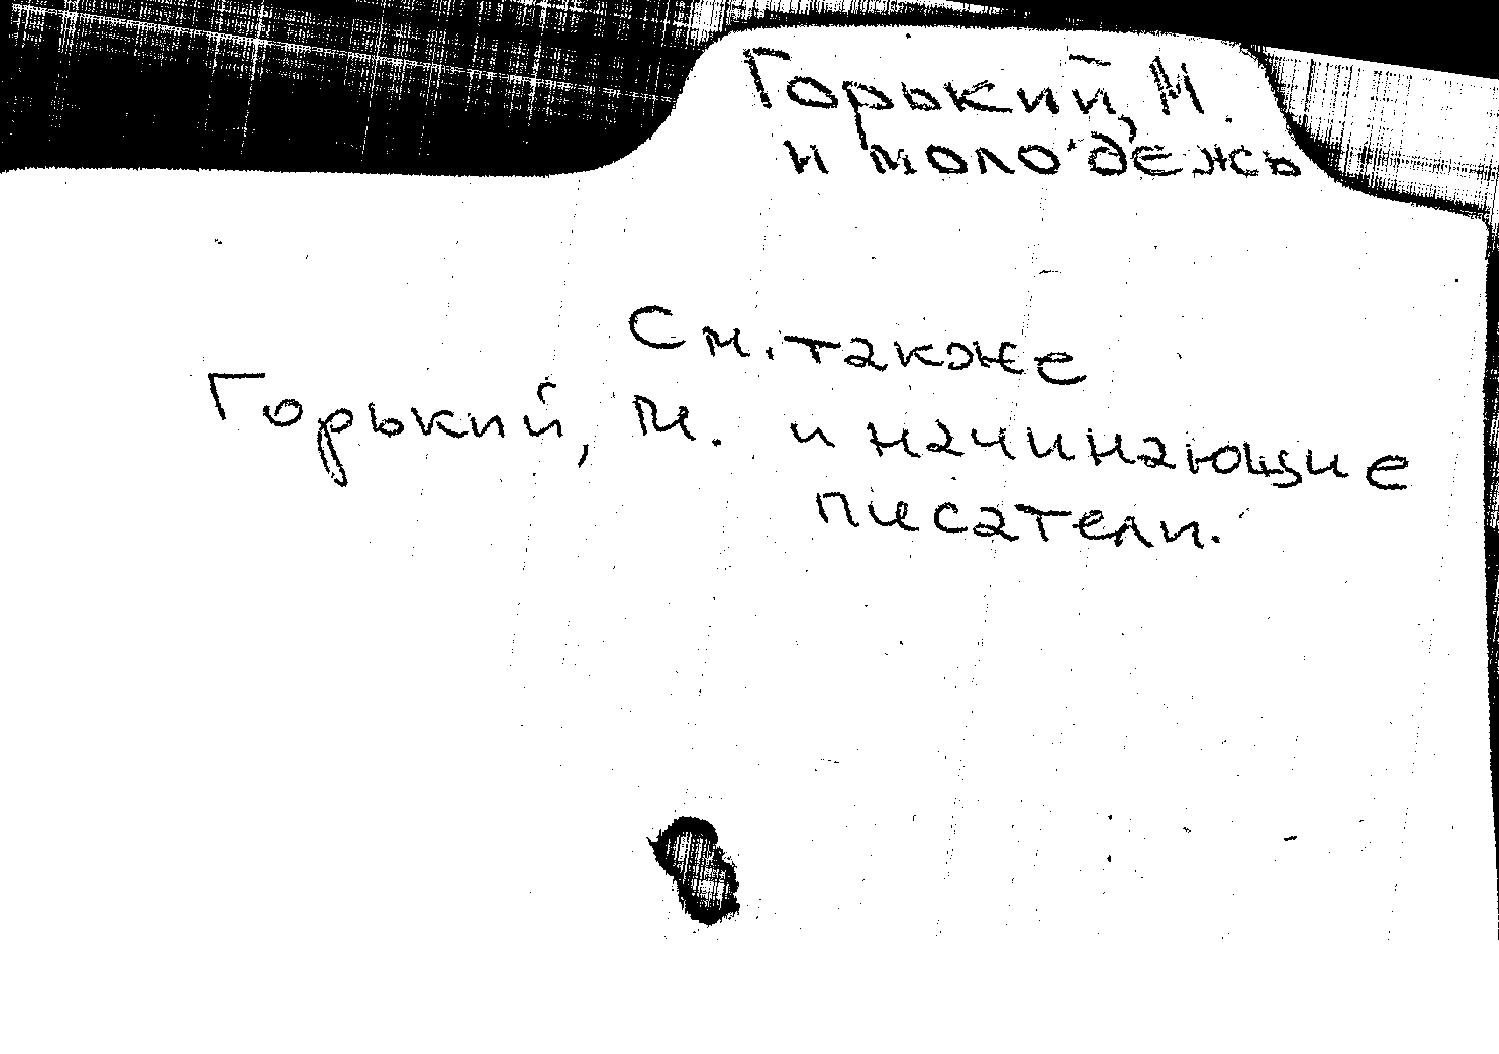 Горький, М.
и молодежь
См. также
Горький, М. и начинающие
писатели.